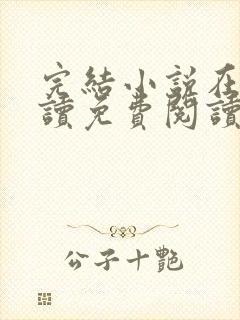 完結小說在
讀免費閱讀
公子十艷